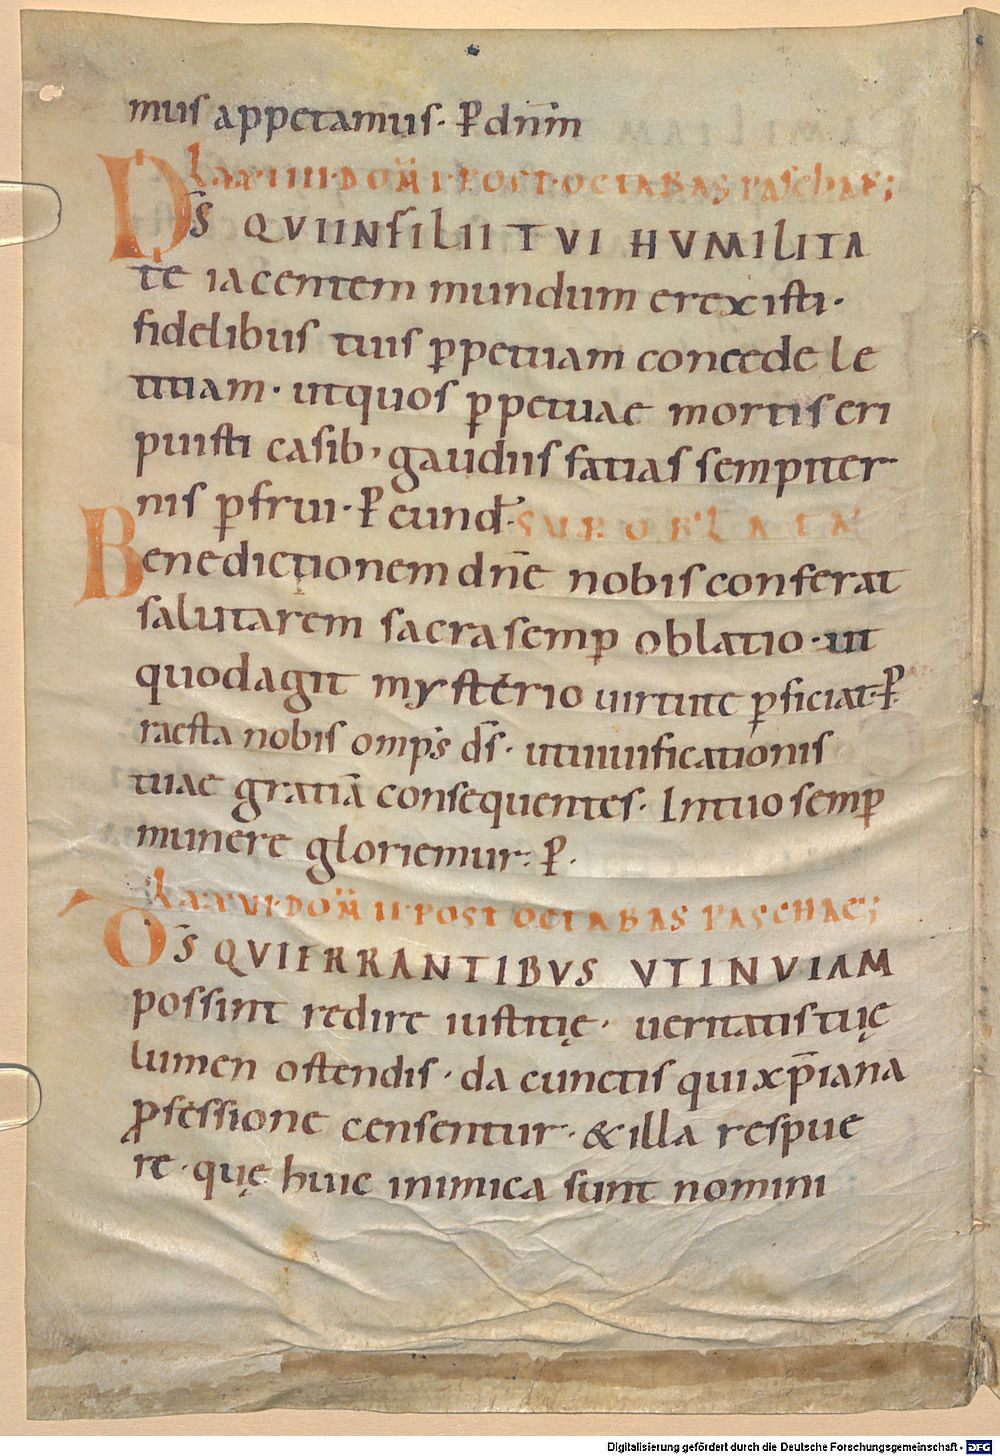 mus appetamus· P̄ dnm̄
Lxxiiii·DOM̄ I·POST·OCTABAS PASCHAE;
D̄S QVI IN FILII TVI HVMILITA
te iacentem mundum erexisti·
fidelibus tuis ꝑpetuam concede le
titiam· ut quos ꝑpetuae mortis eri
puisti casib; gaudiis fatias sempiter
nis ꝑfrui· P̄ eund̄· SUP OBLATA
Benedictionem dn̄e nobis conferat
salutarem sacra semꝑ oblatio· ut
quod agit mysterio uirtute ꝑficiat· P̄
raesta nobis omp̄s d̄s· ut uiuificationis
tuae gratiā consequentes· In tuo semꝑ
munere gloriemur· P̄·
DOM̄ II·POST OCTABAS PASCHAE;
D̄S QVI ERRANTIBVS VT IN VIAM
possint redire iustitię· ueritatis tuę
lumen ostendis· da cunctis qui xp̄iana
ꝓfessione censentur· & illa respue
re· quę huic inimica sunt nomini
Digitalisierung gefördert durch die Deutsche Forschungsgemeinschaft - DFG